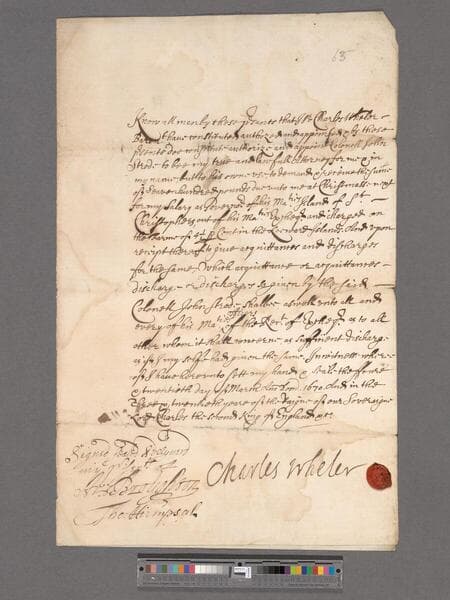 65
Know all men by these presents that I Sr Charles Wheler
Barrt have constituted authorized and appointed & by these
presents doe constitute authorize and appoint Colonell John
Strode to bee my true and lawfull Attorney for me & in
my name butt to his owne use to demand & receive the summe
of seaven hundred pounds due unto me at Christmass next
for my salary as Governor of his Maties Island of St.
Christophers out of his Maties Excheqr and charged on
the farme of 4½ p Cent in the Leeward Islands And upon
receipt thereof to give acquittances and discharges
for the same, Which acquittance or acquittances
discharge or discharges so given by the said
Colonell John Strode shalbee as well unto all and
every of his Maties officers of the Rect. of Excheqr. as to all
other whom it shall concerne as sufficient discharge
as if I my selfe had given the same. In witness where-
of I have hereunto sett my hand & seale the foure
& twentieth day of March Ano Dom. 1670 And in the
three & twentieth yeare of the Raigne of our Soveraigne
Lord Charles the second King of England &c
Signed sealed & delivered
in ye presence of
Charles Wheler